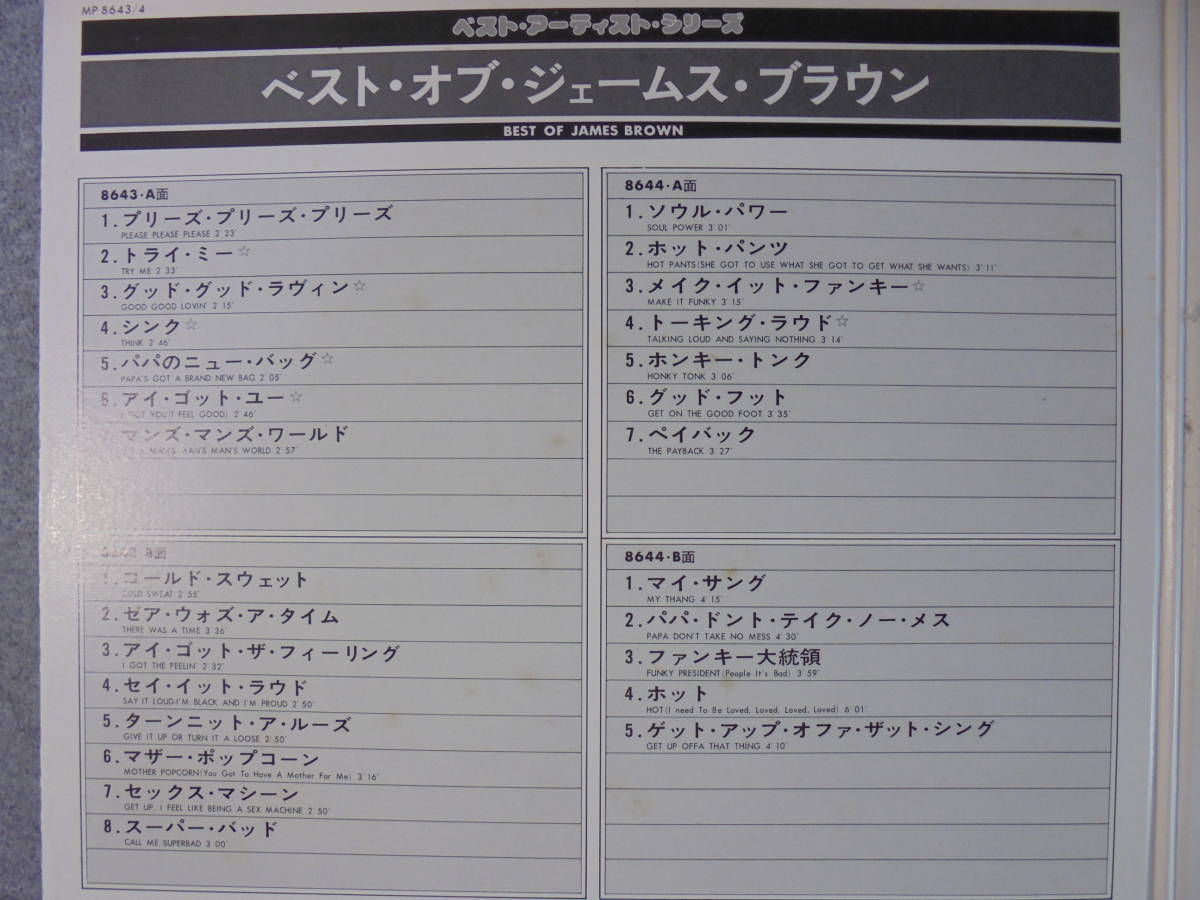 MP 8643/4
ベスト・アーティスト・シリーズ
ベスト・オブ・ジェームス・ブラウン
BEST OF JAMES BROWN
8643・A面
1.プリーズ・プリーズ・プリーズ
PLEASE PLEASE PLEASE 2′23″
2.トライ・ミー☆
TRY ME 2′33″
3.グッド・グッド・ラヴィン☆
GOOD GOOD LOVIN' 2′15″
4.シンク☆
THINK 2′46″
5.パパのニュー・バッグ☆
PAPA'S GOT A BRAND NEW BAG 2′05″
6.アイ・ゴット・ユー☆
I GOT YOU(I FEEL GOOD) 2′46″
マンズ・マンズ・ワールド
A MAN'S MAN'S MAN'S WORLD 2′57″
B面
1.コールド・スウェット
COLD SWEAT 2′55″
2.ゼア・ウォズ・ア・タイム
THERE WAS A TIME 3′36″
3.アイ・ゴット・ザ・フィーリング
I GOT THE FEELIN' 2′32″
4.セイ・イット・ラウド
SAY IT LOUD-I'M BLACK AND I'M PROUD 2′50″
5.ターンニット・ア・ルーズ
GIVE IT UP OR TURN IT A LOOSE 2′50″
6.マザー・ポップコーン
MOTHER POPCORN(You Got To Have A Mother For Me) 3′16″
7.セックス・マシーン
GET UP, I FEEL LIKE BEING A SEX MACHINE 2′50″
8.スーパー・バッド
CALL ME SUPERBAD 3′00″
8644・A面
1.ソウル・パワー
SOUL POWER 3′01″
2.ホット・パンツ
HOT PANTS(SHE GOT TO USE WHAT SHE GOT TO GET WHAT SHE WANTS) 3′11″
3.メイク・イット・ファンキー☆
MAKE IT FUNKY 3′15″
4.トーキング・ラウド☆
TALKING LOUD AND SAYING NOTHING 3′14″
5.ホンキー・トンク
HONKY TONK 3′06″
6.グッド・フット
GET ON THE GOOD FOOT 3′35″
7.ペイバック
THE PAYBACK 3′27″
8644・B面
1.マイ・サング
MY THANG 4′15″
2.パパ・ドント・テイク・ノー・メス
PAPA DON'T TAKE NO MESS 4′30″
3.ファンキー大統領
FUNKY PRESIDENT(People It's Bad) 3′59″
4.ホット
HOT(I need To Be Loved, Loved, Loved, Loved) 6′01″
5.ゲット・アップ・オファ・ザット・シング
GET UP OFFA THAT THING 4′10″